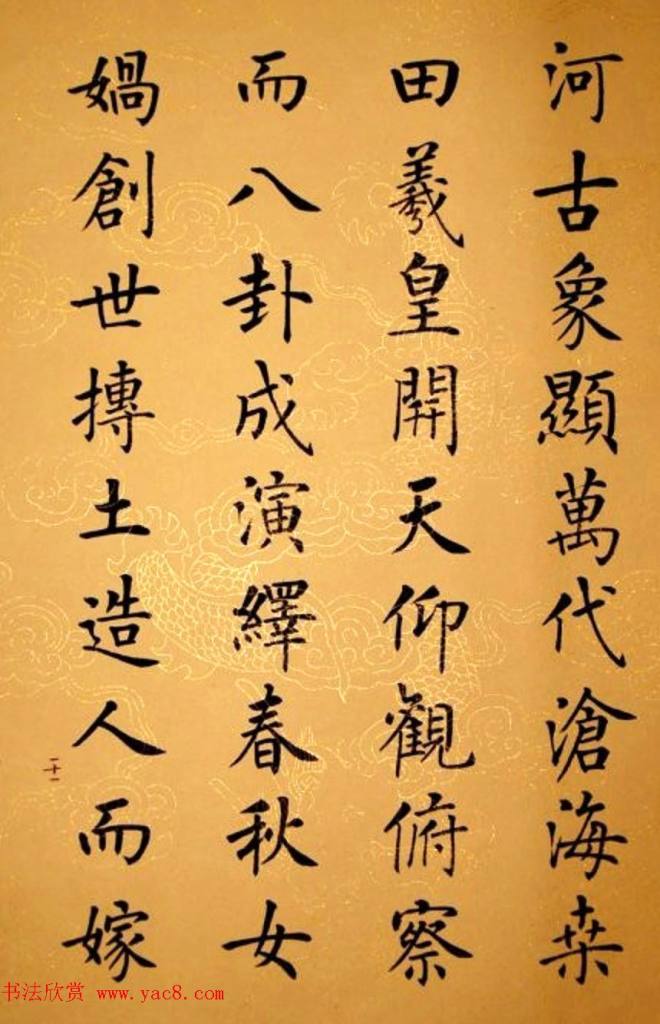 河古象顯萬代滄海桒
田羲皇開天仰觀俯察
而八卦成演繹春秋女
媧創世摶土造人而嫁
二十一
书法欣赏 www.yac8.com